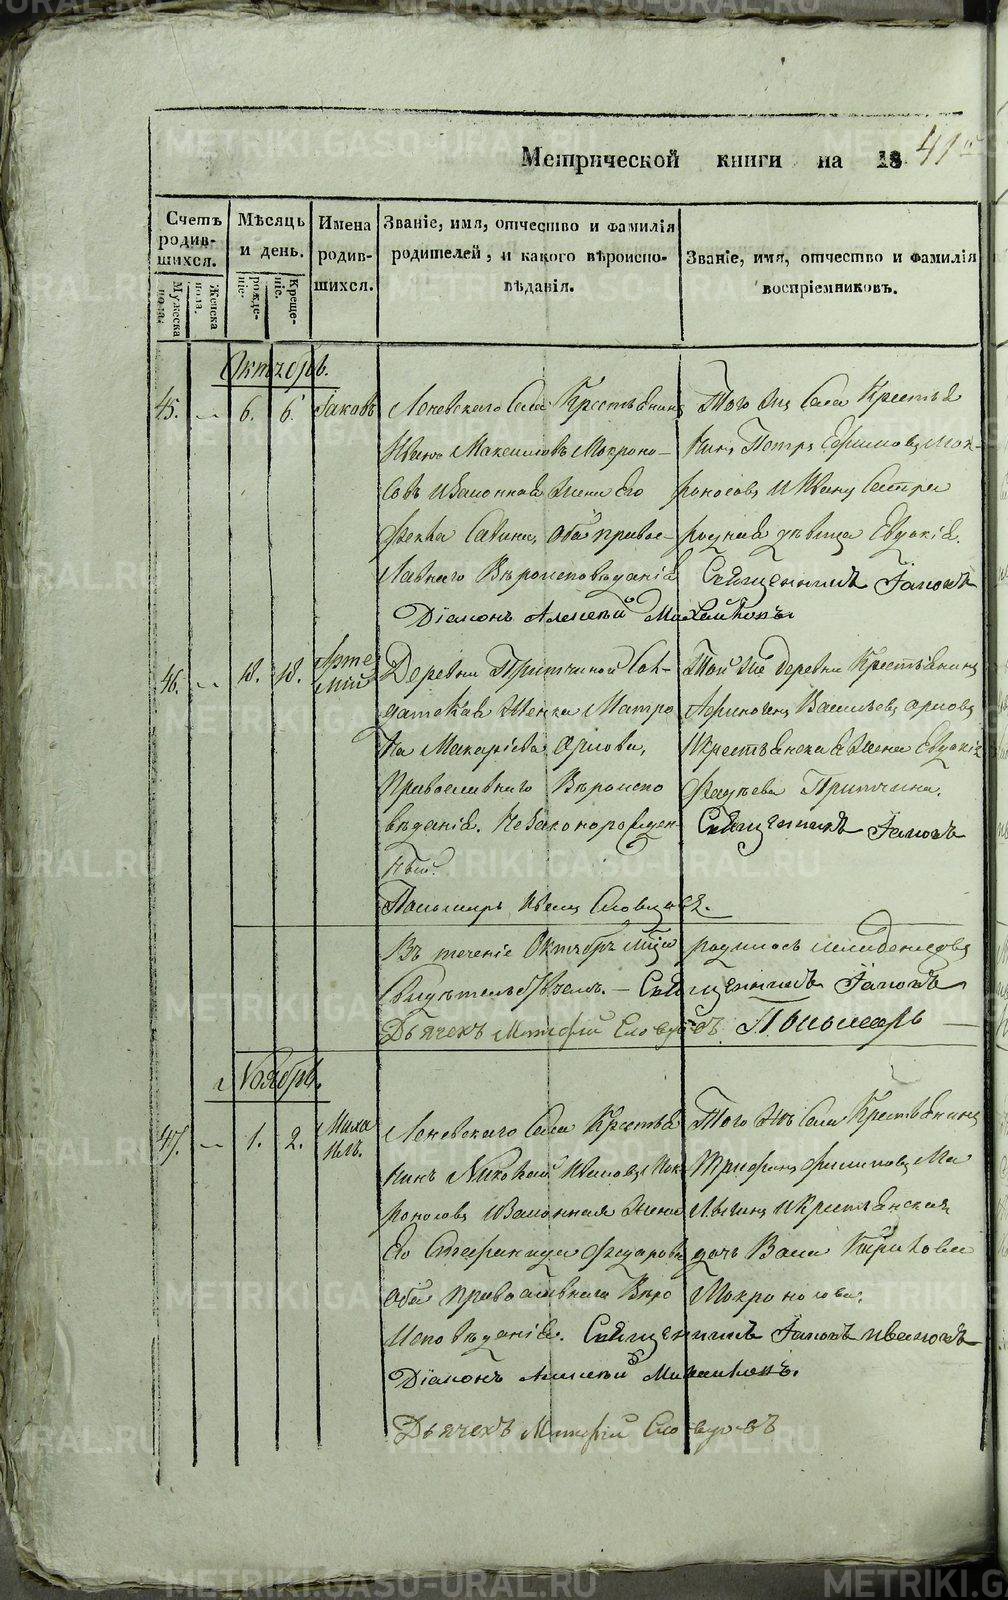 Метрической книги на 1841й
Счетъ родив-шихся.
Мужеска пола.
Женска пола.
Мѣсяцъ и день.
рожде-ніе.
Креще-ніе.
Имена родив-шихся.
Званіе, имя, отчество и фамилія
родителей, и какого вѣроиспо-
вѣданія.
Званіе, имя, отчество и фамилія
воспріемниковъ.
Октябрь.
45. 6. 6. Іаковъ
Леневскаго Села Крестьянинъ
Иванъ Максимовъ Мокроно-
совъ и Законная Жена Его
Фекла Савина, оба православ-
лавнаго Вѣроисповѣданія
Того же Села Крестья
нинъ Петръ Ефимовъ Мок-
роносовъ и Ивану Сестра
родная дѣвица Евдокія.
Священникъ
Діаконъ Алексѣй
46. 18. 18. Арте
мій
Деревни Притчиной Сол-
датская Женка Матро
на Макарьева Орлова,
Православнаго Вѣроиспо
вѣданія. Незаконорожден-
ный.
Той же деревни Крестьянинъ
Афиногенъ Васильевъ Орловъ
и крестьянская Жена Евдокія
Фадѣева Притчина.
Священникъ
Пономарь
Въ теченіе Октября мѣсяца родилось младенцовъ
Свидѣтельствуемъ. — Священникъ
Дьячекъ Пономарь
Ноябрь.
47. 1. 2. Миха
илъ.
Леневскаго Села Крестья
нинъ Николай Ивановъ Мок
роносовъ и Законная Жена
Его Стефанида Федорова
оба православнаго Вѣро
исповѣданія.
Того жъ Села Крестьянинъ
Трифонъ Филиповъ Ма
лыгинъ и Крестьянская
дочь Васса Кирилова
Мокроносова.
Священникъ
Діаконъ Алексѣй
Дьячекъ
METRIKI.GASO-URAL.RU